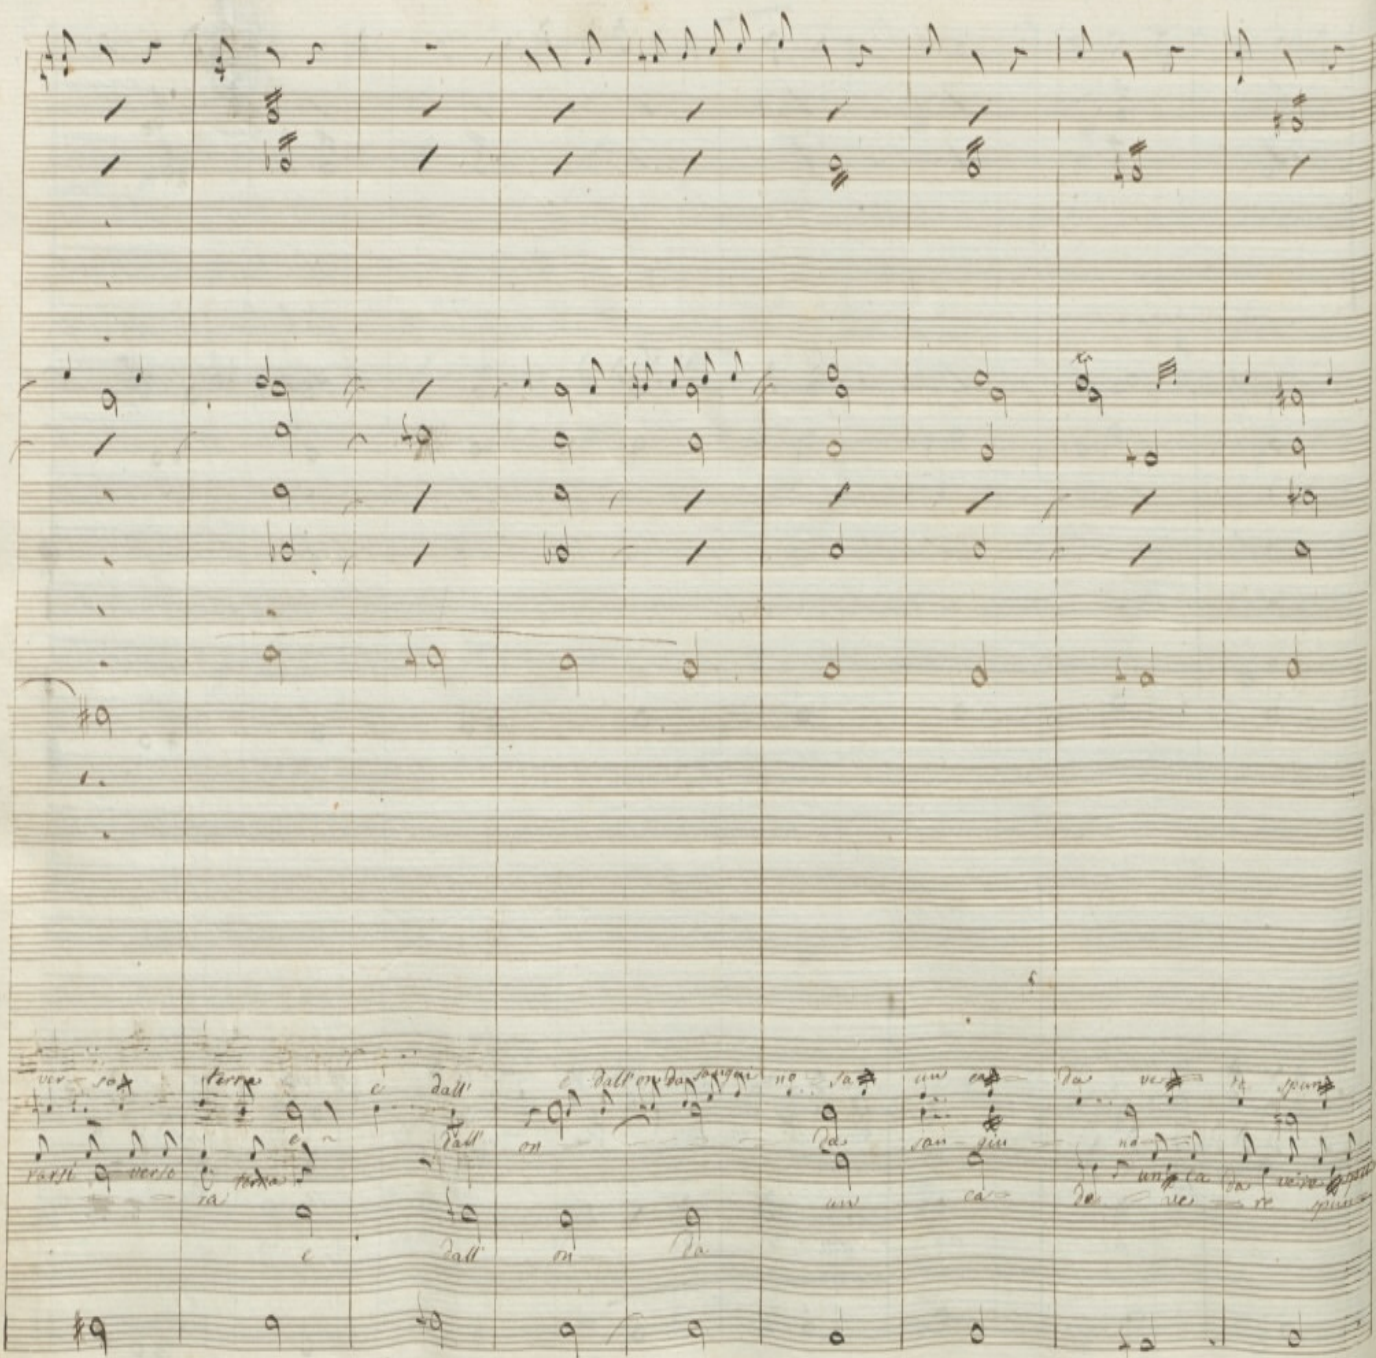 ver so terra e dall' e dall' onda sangui no sa un ca da ve re spun
e dall' on da san gui no
rarsi verso terra un ca da vere
ra un ca da ve re spun
e dall' on da